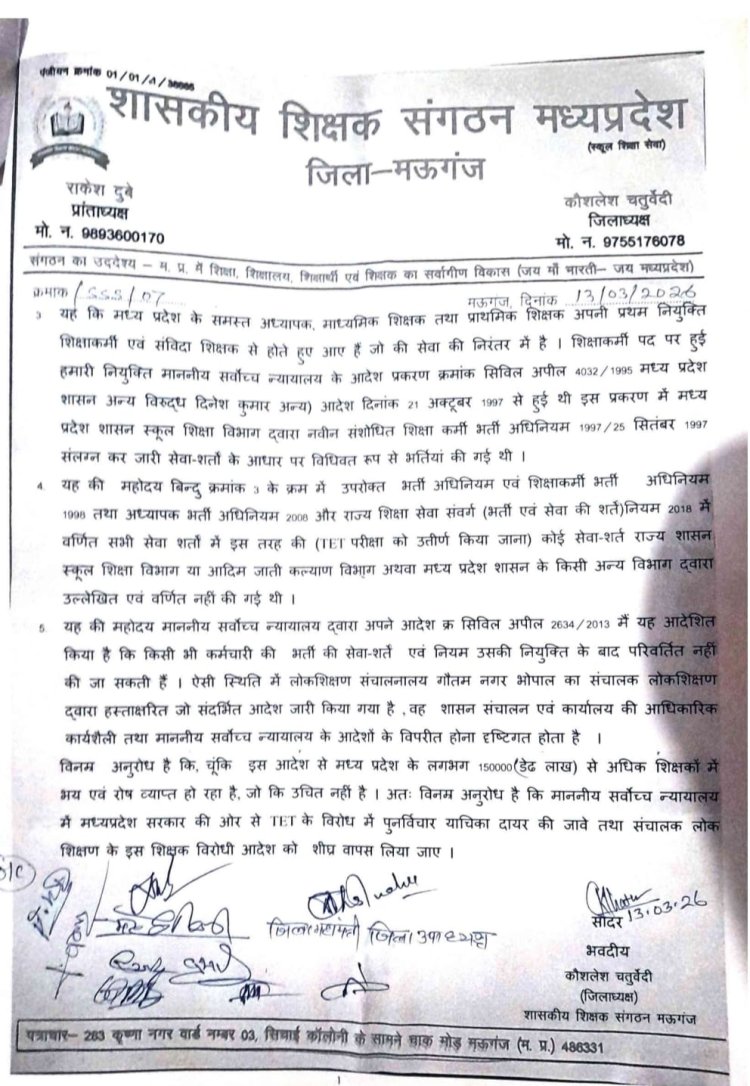 पंजीयन क्रमांक 01/01/
शासकीय शिक्षक संगठन मध्यप्रदेश
(स्कूल शिक्षा सेवा)
जिला–मऊगंज
राकेश दुबे
प्रांताध्यक्ष
मो. न. 9893600170
कौशलेश चतुर्वेदी
जिलाध्यक्ष
मो. न. 9755176078
संगठन का उददेश्य – म. प्र. में शिक्षा, शिक्षालय, शिक्षार्थी एवं शिक्षक का सर्वागीण विकास (जय माँ भारती– जय मध्यप्रदेश)
क्रमांक /SSS/07
मऊगंज, दिनांक 13/03/2026
3 यह कि मध्य प्रदेश के समस्त अध्यापक, माध्यमिक शिक्षक तथा प्राथमिक शिक्षक अपनी प्रथम नियुक्ति
शिक्षाकर्मी एवं संविदा शिक्षक से होते हुए आए हैं जो की सेवा की निरंतर में है । शिक्षाकर्मी पद पर हुई
हमारी नियुक्ति माननीय सर्वोच्च न्यायालय के आदेश प्रकरण क्रमांक सिविल अपील 4032/1995 मध्य प्रदेश
शासन अन्य विरुद्ध दिनेश कुमार अन्य) आदेश दिनांक 21 अक्टूबर 1997 से हुई थी इस प्रकरण में मध्य
प्रदेश शासन स्कूल शिक्षा विभाग द्वारा नवीन संशोधित शिक्षा कर्मी भर्ती अधिनियम 1997/25 सितंबर 1997
संलग्न कर जारी सेवा-शर्तो के आधार पर विधिवत रूप से भर्तियां की गई थी ।
4. यह की महोदय बिन्दु क्रमांक 3 के क्रम में उपरोक्त भर्ती अधिनियम एवं शिक्षाकर्मी भर्ती अधिनियम
1998 तथा अध्यापक भर्ती अधिनियम 2008 और राज्य शिक्षा सेवा संवर्ग (भर्ती एवं सेवा की शर्ते)नियम 2018 में
वर्णित सभी सेवा शर्तो में इस तरह की (TET परीक्षा को उतीर्ण किया जाना) कोई सेवा-शर्त राज्य शासन
स्कूल शिक्षा विभाग या आदिम जाती कल्याण विभाग अथवा मध्य प्रदेश शासन के किसी अन्य विभाग द्वारा
उल्लेखित एवं वर्णित नहीं की गई थी ।
5. यह की महोदय माननीय सर्वोच्च न्यायालय द्वारा अपने आदेश क्र सिविल अपील 2634/2013 में यह आदेशित
किया है कि किसी भी कर्मचारी की भर्ती की सेवा-शर्तें एवं नियम उसकी नियुक्ति के बाद परिवर्तित नहीं
की जा सकती हैं । ऐसी स्थिति में लोकशिक्षण संचालनालय गौतम नगर भोपाल का संचालक लोकशिक्षण
द्वारा हस्ताक्षरित जो संदर्भित आदेश जारी किया गया है ,वह शासन संचालन एवं कार्यालय की आधिकारिक
कार्यशैली तथा माननीय सर्वोच्च न्यायालय के आदेशों के विपरीत होना दृष्टिगत होता है ।
विनम्र अनुरोध है कि, चूंकि इस आदेश से मध्य प्रदेश के लगभग 150000(डेढ लाख) से अधिक शिक्षकों में
भय एवं रोष व्याप्त हो रहा है, जो कि उचित नहीं है । अतः विनम्र अनुरोध है कि माननीय सर्वोच्च न्यायालय
में मध्यप्रदेश सरकार की ओर से TET के विरोध में पुनर्विचार याचिका दायर की जावे तथा संचालक लोक
शिक्षण के इस शिक्षक विरोधी आदेश को शीघ्र वापस लिया जाए ।
जिला महामंत्री
जिला उपाध्यक्ष
सादर 13.03.26
भवदीय
कौशलेश चतुर्वेदी
(जिलाध्यक्ष)
शासकीय शिक्षक संगठन मऊगंज
पत्राचार– 283 कृष्णा नगर वार्ड नम्बर 03, सिंचाई कॉलोनी के सामने चाक मोड़ मऊगंज (म. प्र.) 486331